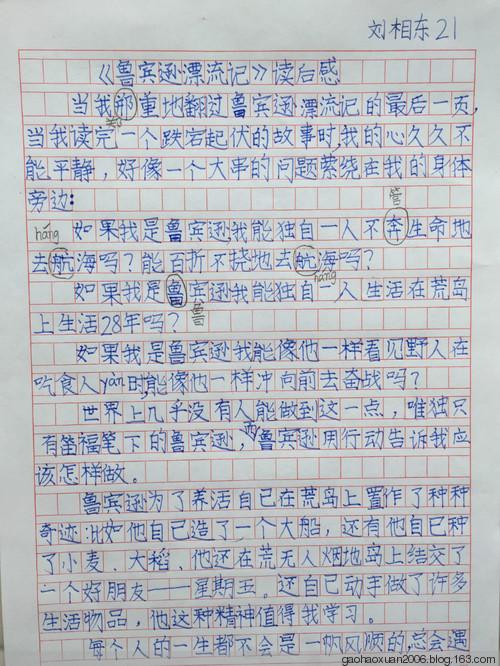 刘相东21
《鲁宾逊漂流记》读后感
当我郑重地翻过鲁宾逊漂流记的最后一页,
当我读完一个跌宕起伏的故事时,我的心久久不
能平静，好像一个大串的问题萦绕在我的身体
旁边:
管
háng 如果我是鲁宾逊,我能独自一人不奔生命地
去航海吗？能百折不挠地去航海吗？
háng
如果我是鲁宾逊我能独自一人生活在荒岛
鲁
上生活28年吗？
如果我是鲁宾逊我能像他一样看见野人在
吃食人yàn时,能像他一样冲向前去奋战吗?
世界上几乎没有人能做到这一点，唯独只
有笛福笔下的鲁宾逊，而鲁宾逊用行动告诉我应
该怎样做。
鲁宾逊为了养活自己在荒岛上置作了种种
奇迹:比如他自己造了一个大船，还有他自己种
了小麦、大稻、他还在荒无人烟地岛上结交了
一个好朋友——星期五。还自己动手做了许多
生活物品，他这种精神值得我学习。
每个人的一生都不会是一帆风顺的,总会遇
gaohaoxuan2006.blog.163.com